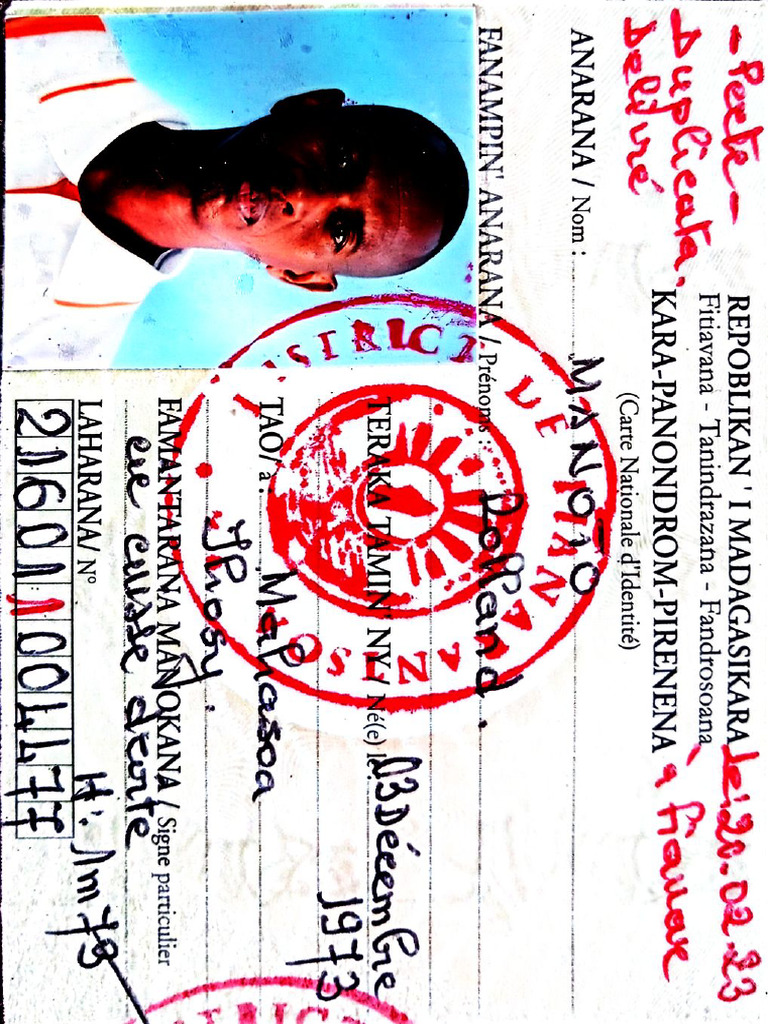 - Perte -
Duplicata.
Délivré
REPOBLIKAN ' I MADAGASIKARA
le: 20.02.23
Fitiavana - Tanindrazana - Fandrosoana
KARA-PANONDROM-PIRENENA
à Fianar
(Carte Nationale d'Identité)
ANARANA / Nom : MANOJO
FANAMPIN' ANARANA / Prénoms : Rolland.
TERAKA TAMIN' NY / Né(e) 03 Décembre
1973
TAO/ à : Mahasoa
Ihosy.
FAMANTARANA MANOKANA / Signe particulier
cuisse droite
H: 1m73
LAHARANA/ N°
216011004477
DISTRICT DE